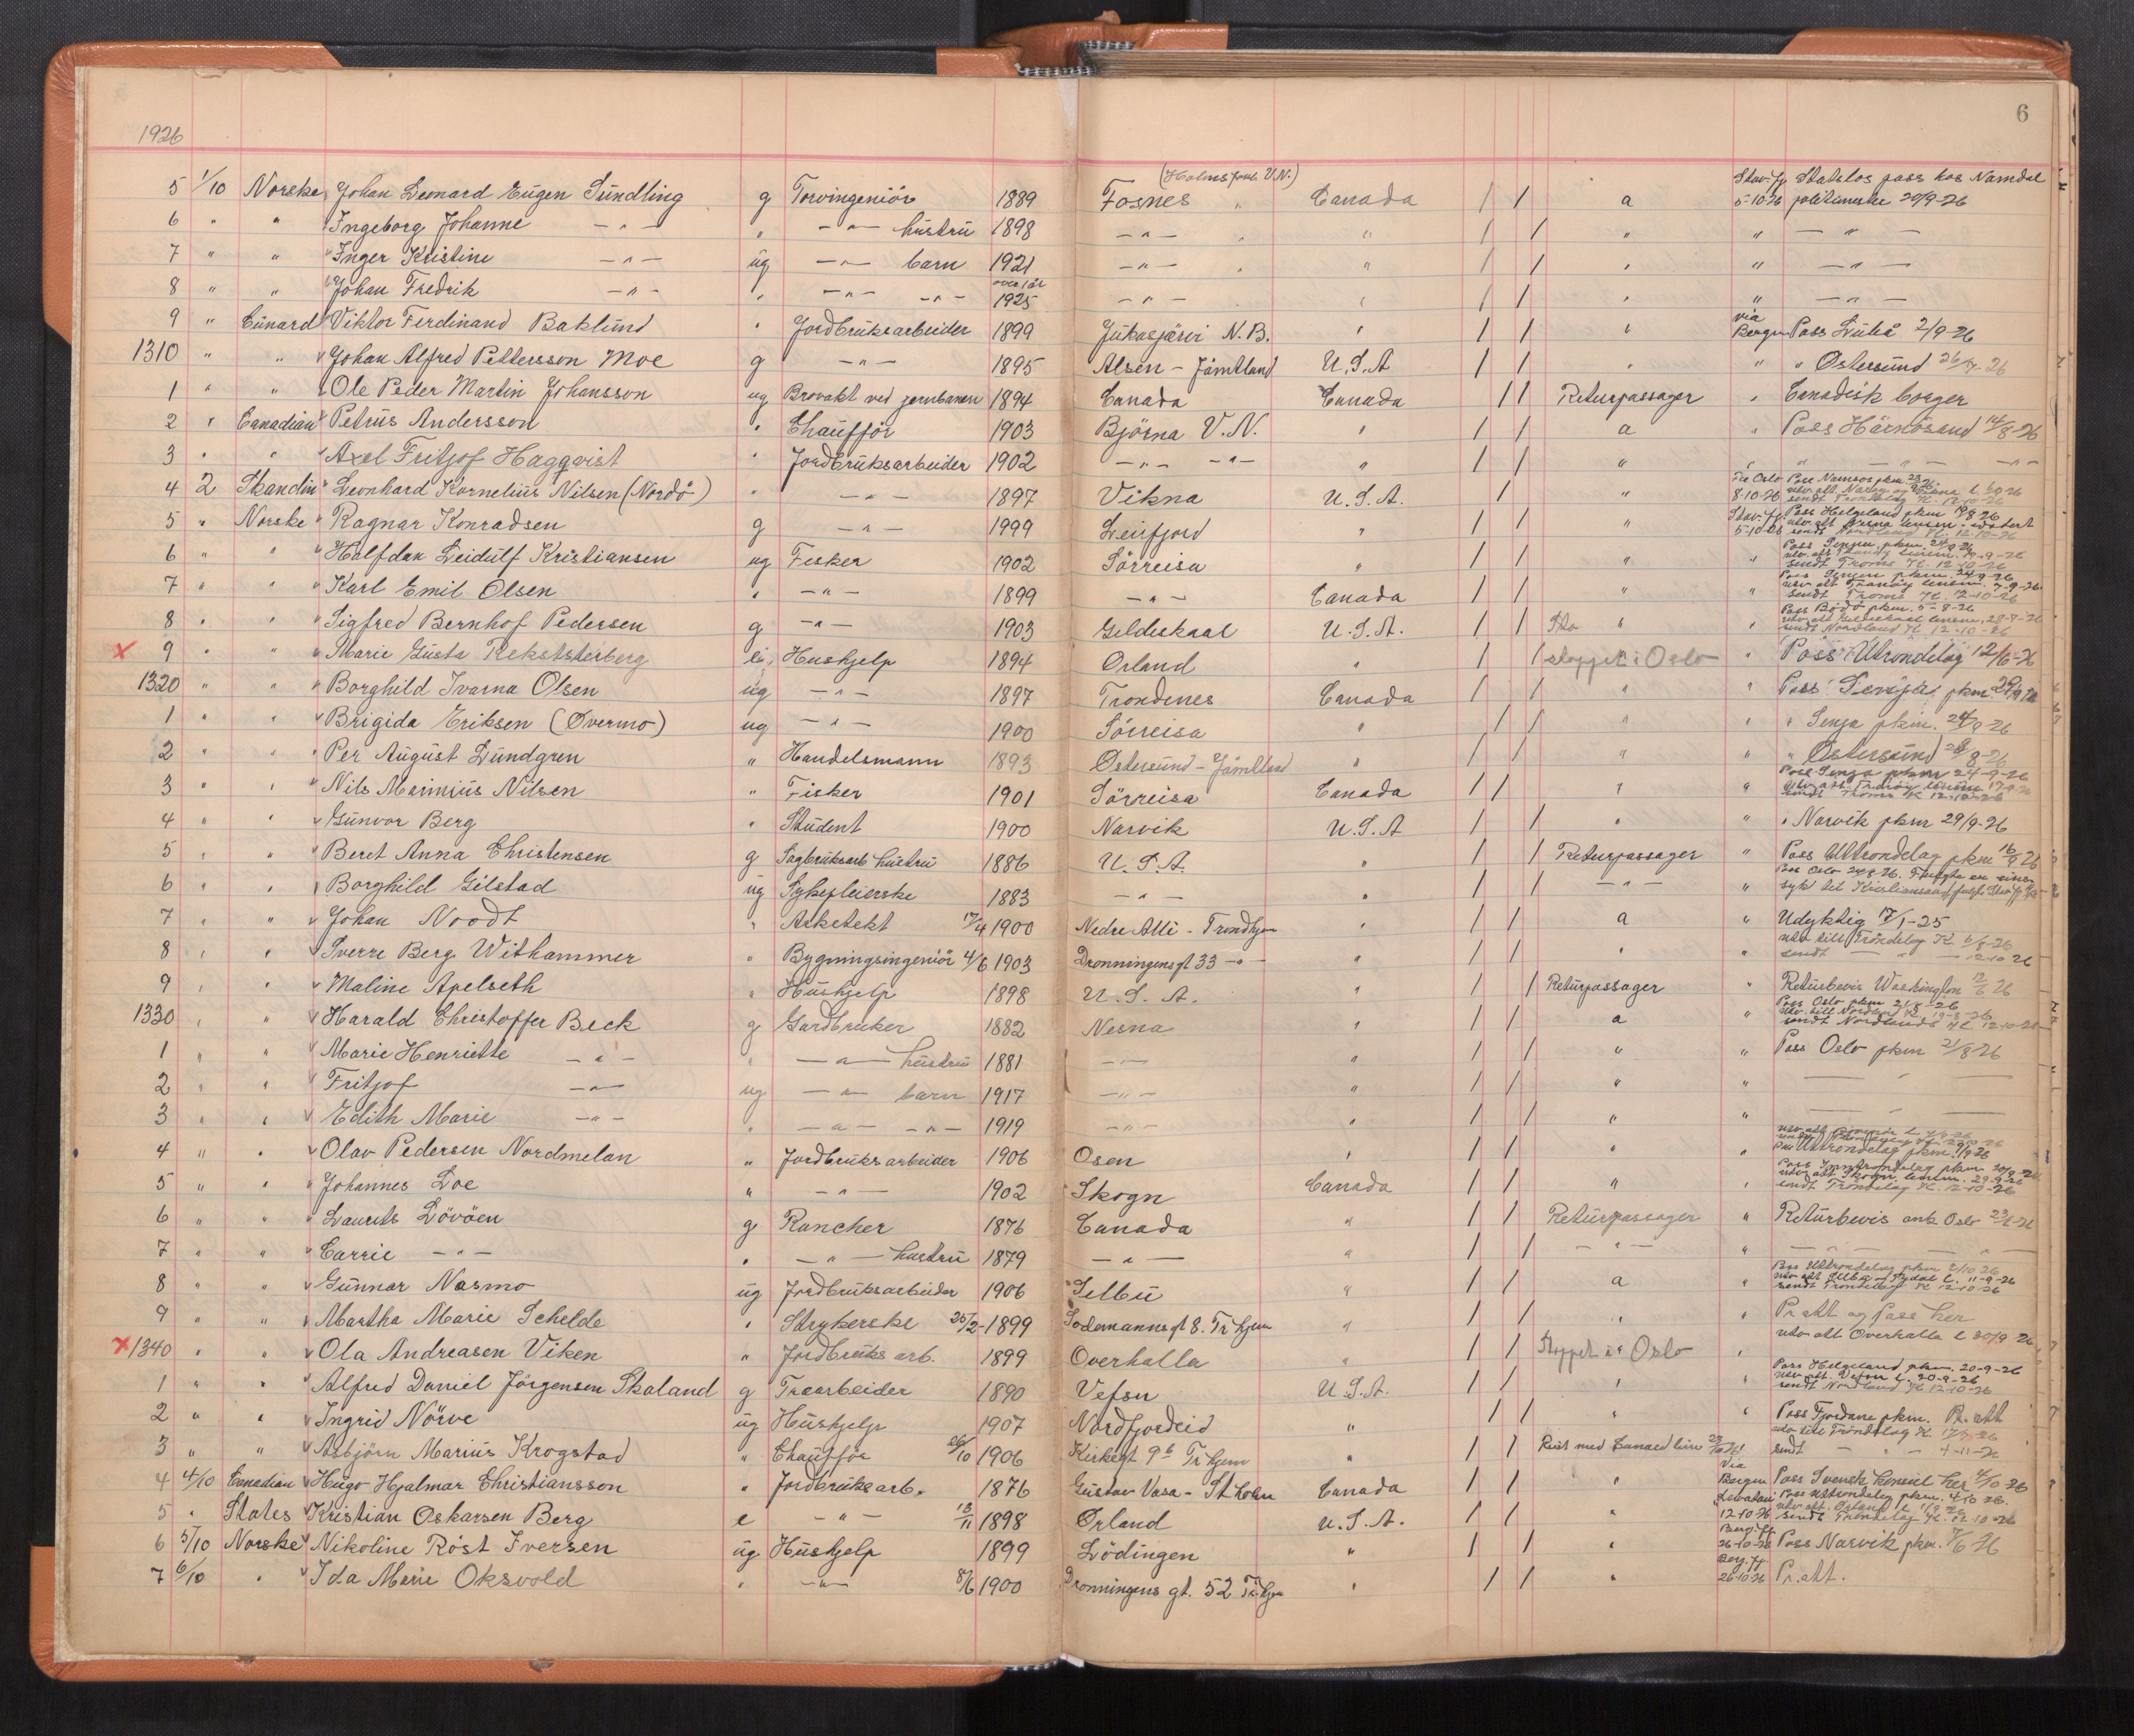 6
1926
5 1/10 Norske Johan Leonard Eugen Sundling g Torvingeniör 1889 Fosnes (Holms U.N.) Canada / / a Stav.fj 5-10-26 Statslös pass hos Namdal politimester 20/9-26
6 " " Ingeborg Johanne -"- " -"- hustru 1898 -"- " " / / " " -"-
7 " " Inger Kristine -"- ug -"- barn 1921 -"- " " / / " " -"-
8 " " Johan Fredrik -"- " -"- -"- over 1 år 1925 -"- " / / " " -"-
9 " Cunard Viktor Ferdinand Baklund " Jordbruksarbeider 1899 Jukasjärvi N.B. " / / " via Bergen Pass Luleå 2/9-26
1310 " " Johan Alfred Pettersson Moe g -"- 1895 Alsen - Jämtland U.S.A / / " " " Østersund 26/7-26
1 " " Ole Peder Martin Johansson ug Brovakt ved jernbanen 1894 Canada Canada / / Returpassager " Canadisk borger
2 " Canadian Petrus Andersson " Chaufför 1903 Björna V.N. " / / a " Pass Härnösand 14/8-26
3 " " Axel Fritjof Haggqvist " Jordbruksarbeider 1902 -"- -"- " / / " " " -"- -"-
4 2 Skandin Leonhard Kornelius Nilsen (Nordö) " -"- 1897 Vikna U.S.A. / " Fra Oslo 8-10-26 Pass Namsos pkm
5 " Norske Ragnar Konradsen g -"- 1999 Leirfjord " / / " Stav.fj 5-10-26 Pass Helgeland pkm 19/8 26 sendt Nordland K. 12-10-26
6 " " Halfdan Leidulf Kristiansen ug Fisker 1902 Sörreisa " / / " " Pass Senja pkm. 24/9 26 sendt Troms K. 12-10-26
7 " " Karl Emil Olsen " -"- 1899 -"- Canada / / " " Pass Senjen pkm. 24/9-26 utv. att Tranöy lensm. 7-9-26 sendt Troms K. 12-10-26
8 " " Sigfred Bernhof Pedersen g -"- 1903 Gildeskaal U.S.A. / / " " Pass Bodö pkm. 5-8-26 utv. att Gildeskaal lensm. 28-8-26 sendt Nordland K 12-10-26
x 9 " " Marie Gusta Rekststerberg Hushjelp 1894 Orland " / / stoppet i Oslo " Pass Utrondelag 12/6-26
1320 " " Borghild Ivarna Olsen ug -"- 1897 Trondenes Canada / / " " Pass Senja pkm 29/9 26
1 " " Brigida Eriksen (Övermo) ug -"- 1900 Sörreisa " / / " " " Senja pkm. 24/9-26
2 " " Per August Lundgren " Handelsmann 1893 Østersund - Jämtland " / / " " " Østersund 28/8-26
3 " " Nils Marinius Nilsen " Fisker 1901 Sörreisa Canada / / " " Pass Senja pkm 24-9-26 utv. att. Tranöy lensm 17-9-26 sendt Troms K 12-10-26
4 " " Gunvor Berg " Student 1900 Narvik U.S.A / / " " " Narvik pkm 29/9-26
5 " " Beret Anna Christensen g Sagbruksarb hustru 1886 U.S.A. " / / Returpassager " Pass Uttrondelag pkm 16/9 26
6 " " Borghild Gilstad ug Sykepleierske 1883 -"- " / / -"- " Pass Oslo 24/8-26. syk til Kristiansand
7 " " Johan Noodt " Arketekt 17/4 1900 Nedre Alle - Trondhjem " / / a " Udyktig 17/1-25
8 " " Sverre Berg Withammer " Bygningsingeniör 4/6 1903 Dronningensgt 33 -"- " / / " " utv till Tröndelag K 6/8-26 sendt -"- 12-10 26
9 " " Maline Apelseth " Hushjelp 1898 U.S.A. " / / Returpassager " Returbevis Washington 12/6 26
1330 " " Harald Christoffer Beck g Gardbruker 1882 Nesna " / / a " Pass Oslo pkm 21/8-26 utv. till Nordland K. 19-8-26 sendt Nordlands K 12-10-26
1 " " Marie Henriette -"- " -"- hustru 1881 -"- " / / " " Pass Oslo pkm 21/8-26
2 " " Fritjof -"- ug -"- barn 1917 -"- " / / " " -"-
3 " " Edith Marie -"- " -"- -"- 1919 -"- " / / " " -"-
4 " " Olav Pedersen Nordmelan " Jordbruksarbeider 1906 Osen " / / " " Pass Uttrondelag pkm. 1/9-26
5 " " Johannes Loe " -"- 1902 Skogn Canada / / " " Pass Inntrondelag pkm 20/9-26 utv. att Skogn lensm. 29-9-26 sendt Tröndelag K. 12-10-26
6 " " Laurits Lövöen g Rancher 1876 Canada " / / Returpassager " Returbevis ank Oslo
7 " " Carrie -"- " -"- hustru 1879 -"- " / / -"- " -"- -"-
8 " " Gunnar Nasmo ug Jordbruksarbeider 1906 Selbu " / / a " Pass Uttrondelag pkm 2/10 26 utv att Selbu - Tydal l. 11-9-26 sendt Tröndelag K 12-10-26
9 " " Martha Marie Schelde " Strykerske 25/2-1899 Sodemannsgt 8. Tr hjem " / / " " Pr att og pass her
x 1340 " " Ola Andreasen Viken " Jordbruks arb. 1899 Overhalla " / / Stoppet i Oslo " utv att Overhalla l 30/9 26
1 " " Alfred Daniel Jörgensen Skaland g Traarbeider 1890 Vefsn U.S.A. / / " " Pass Helgeland pkm. 20-9-26 utv. att. Vefsn l. 20-9-26 sendt Nordland K 12-10-26
2 " " Ingrid Nörve ug Hushjelp 1907 Nordfjordeid " / / " " Pass Fjordane pkm. Pr. att
3 " " Asbjörn Marius Krogstad " Chaufför 26/10 1906 Kirkegt 9b Tr hjem " / / Reist med Cunard line utv till Tröndelag K. sendt -"- 4-11-26
4 4/10 Canadian Hugo Hjalmar Christiansson " Jordbruksarb. 1876 Gustav Vasa - St holm Canada / / " Via Bergen Pass Svensk konsul her 4/10 26
5 " States Kristian Oskarsen Berg e -"- 13/11 1898 Ørland U.S.A. / / " 12-10-26 Pass Uttrondelag pkm. 4/10 26. utv. att. Örland l sendt Tröndelag K. 12-10-26
6 5/10 Norske Nikoline Röst Iversen ug Hushjelp 1899 Lödingen " / / " Berg.fj. 26-10-26 Pass Narvik pkm.
7 6/10 " Ida Marie Oksvold " -"- 8/6 1900 Dronningens gt. 52 Tr.hjem " / / " Berg.fj. 26-10-26 Pr. att.